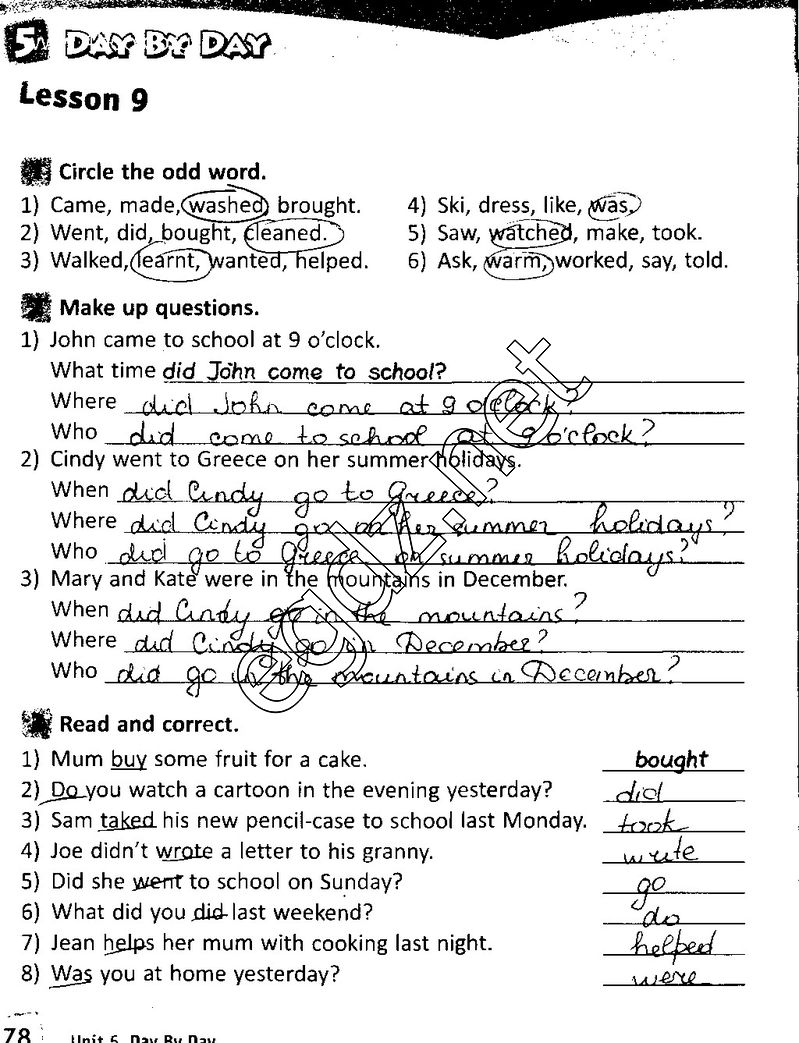 5 DAY BY DAY
Lesson 9
Circle the odd word.
1) Came, made, washed, brought.
2) Went, did, bought, cleaned.
3) Walked, learnt, wanted, helped.
4) Ski, dress, like, was.
5) Saw, watched, make, took.
6) Ask, warm, worked, say, told.
Make up questions.
1) John came to school at 9 o'clock.
What time did John come to school?
Where did John come at 9 o'clock?
Who did come to school at 9 o'clock?
2) Cindy went to Greece on her summer holidays.
When did Cindy go to Greece?
Where did Cindy go on her summer holidays?
Who did go to Greece on summer holidays?
3) Mary and Kate were in the mountains in December.
When did Cindy go in the mountains?
Where did Cindy go in December?
Who did go in the mountains in December?
Read and correct.
1) Mum buy some fruit for a cake. bought
2) Do you watch a cartoon in the evening yesterday? did
3) Sam taked his new pencil-case to school last Monday. took
4) Joe didn't wrote a letter to his granny. write
5) Did she went to school on Sunday? go
6) What did you did last weekend? do
7) Jean helps her mum with cooking last night. helped
8) Was you at home yesterday? were
78 Unit 5 Day By Day
egdz.net